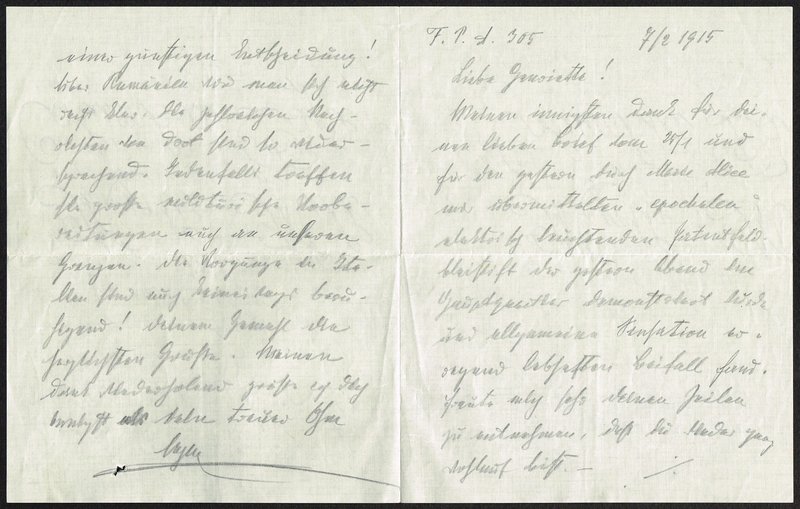 F. P. A. 305 7/2 1915
Liebe Henriette!
Meinen innigsten Dank für dei-
nen lieben Brief vom 25/1 und
für den gestern durch Marie Alice
mir übermittelten „epochalen"
elektrisch leuchtenden Patentfeld-
bleistift der gestern Abend im
Hauptquartier demonstriert wurde
und allgemeine Sensation er-
regend lebhaften Beifall fand.
Freute mich sehr deinen Zeilen
zu entnehmen, daß du wieder ganz
wohlauf bist. —
einer günstigen Entscheidung!
Über Rumänien wird man sich nicht
recht klar, die zahlreichen Nach-
richten von dort sind so wider-
sprechend. Jedenfalls treffen
sie große militärische Vorbe-
reitungen auch an unseren
Grenzen. Die Vorgänge in Ita-
lien sind auch keineswegs beru-
higend! Deinem Gemahl die
herzlichsten Grüße. Meinen
Dank wiederholend grüße ich dich
als dein treuer Ohm
Eugen